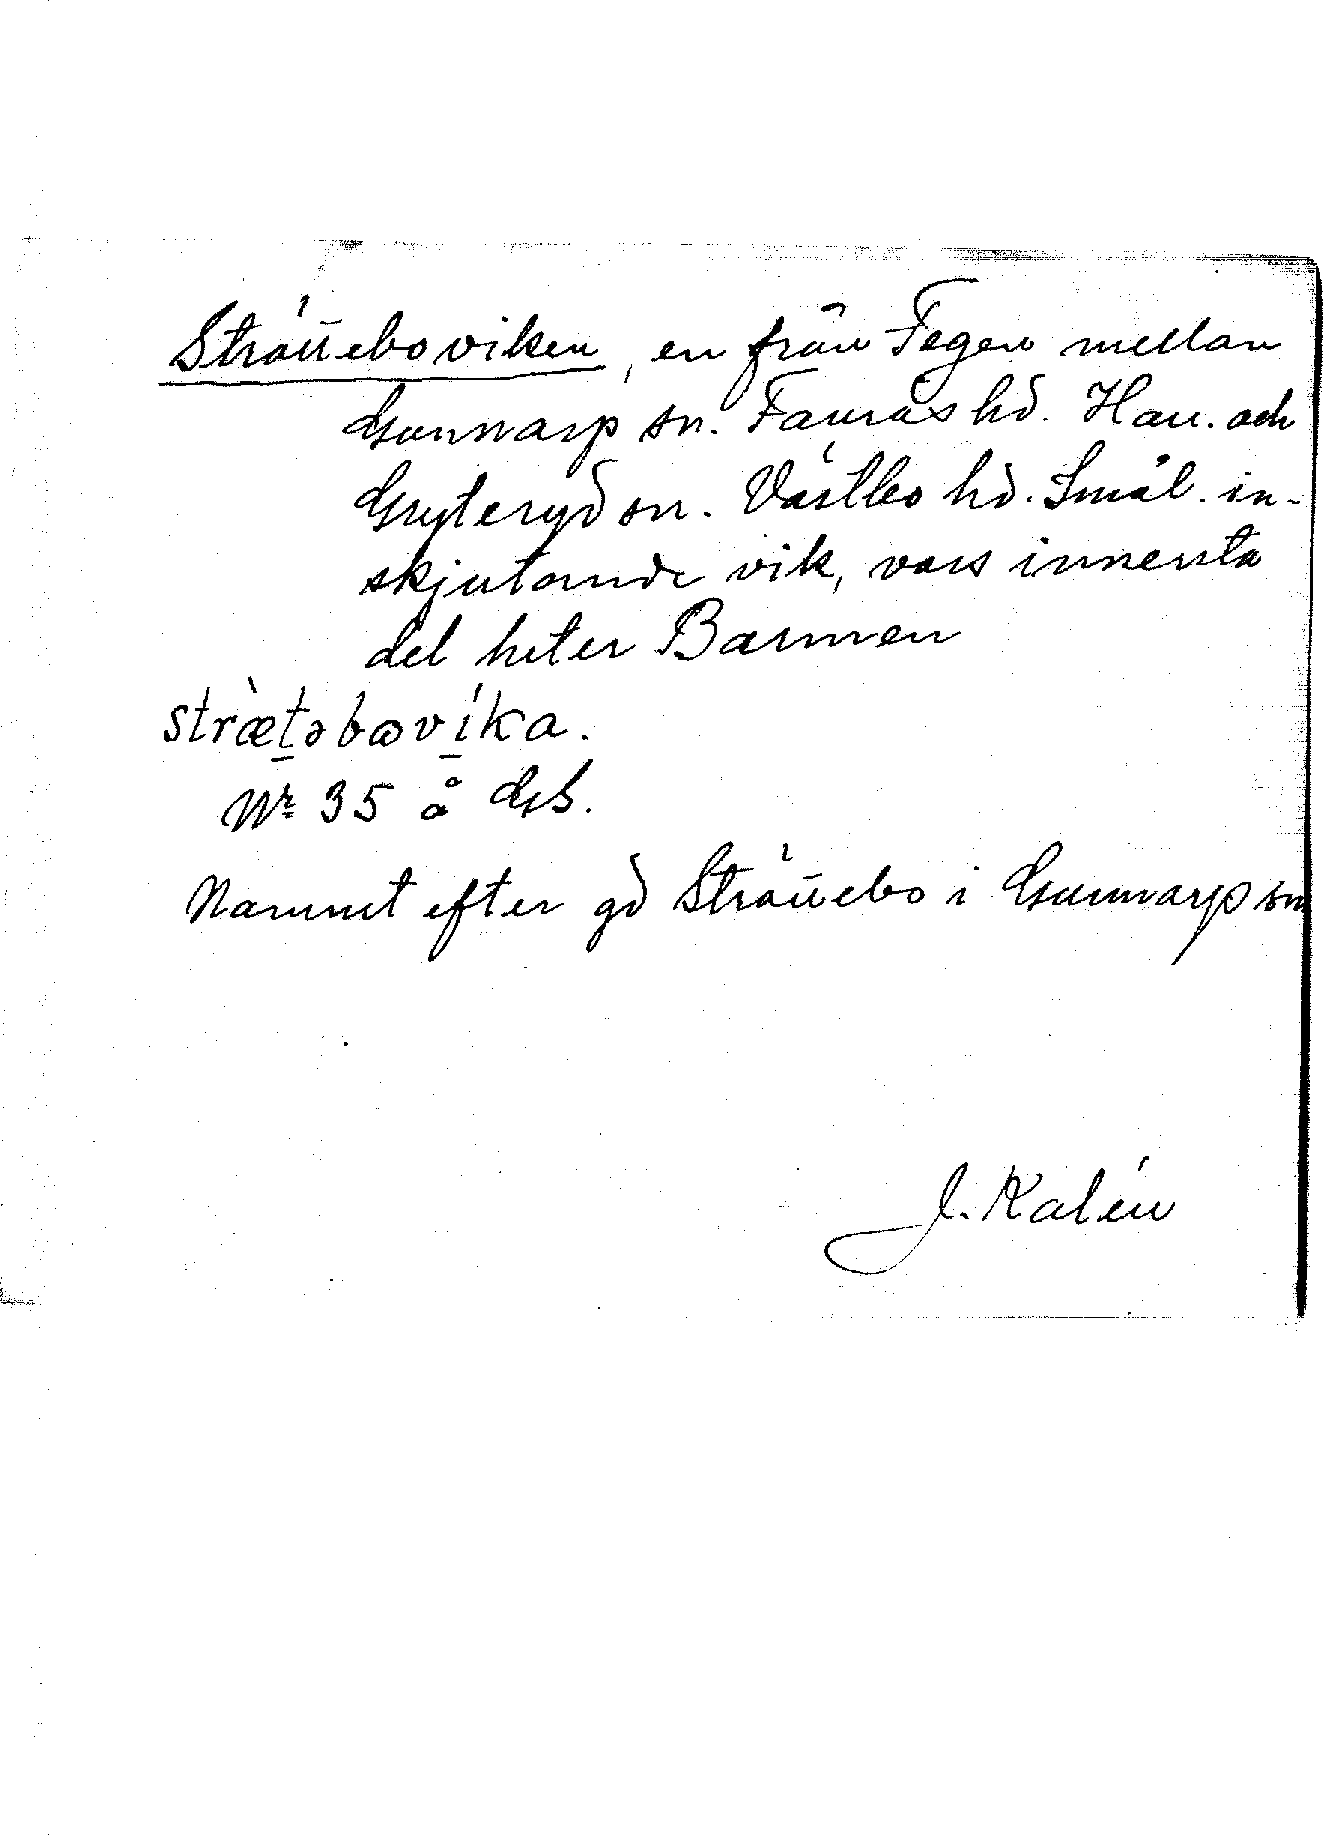 Strätteboviken, en från Fegen mellan
Gunnarp sn. Faurås hd. Hall. och
Gryteryd sn. Västbo hd. Smål. in-
skjutande vik, vars innersta
del heter Barmen
stræ̀təbωvíka.
Nr 35 å Gs.
Namnet efter gd Strättebo i Gunnarp sn
J. Kalén